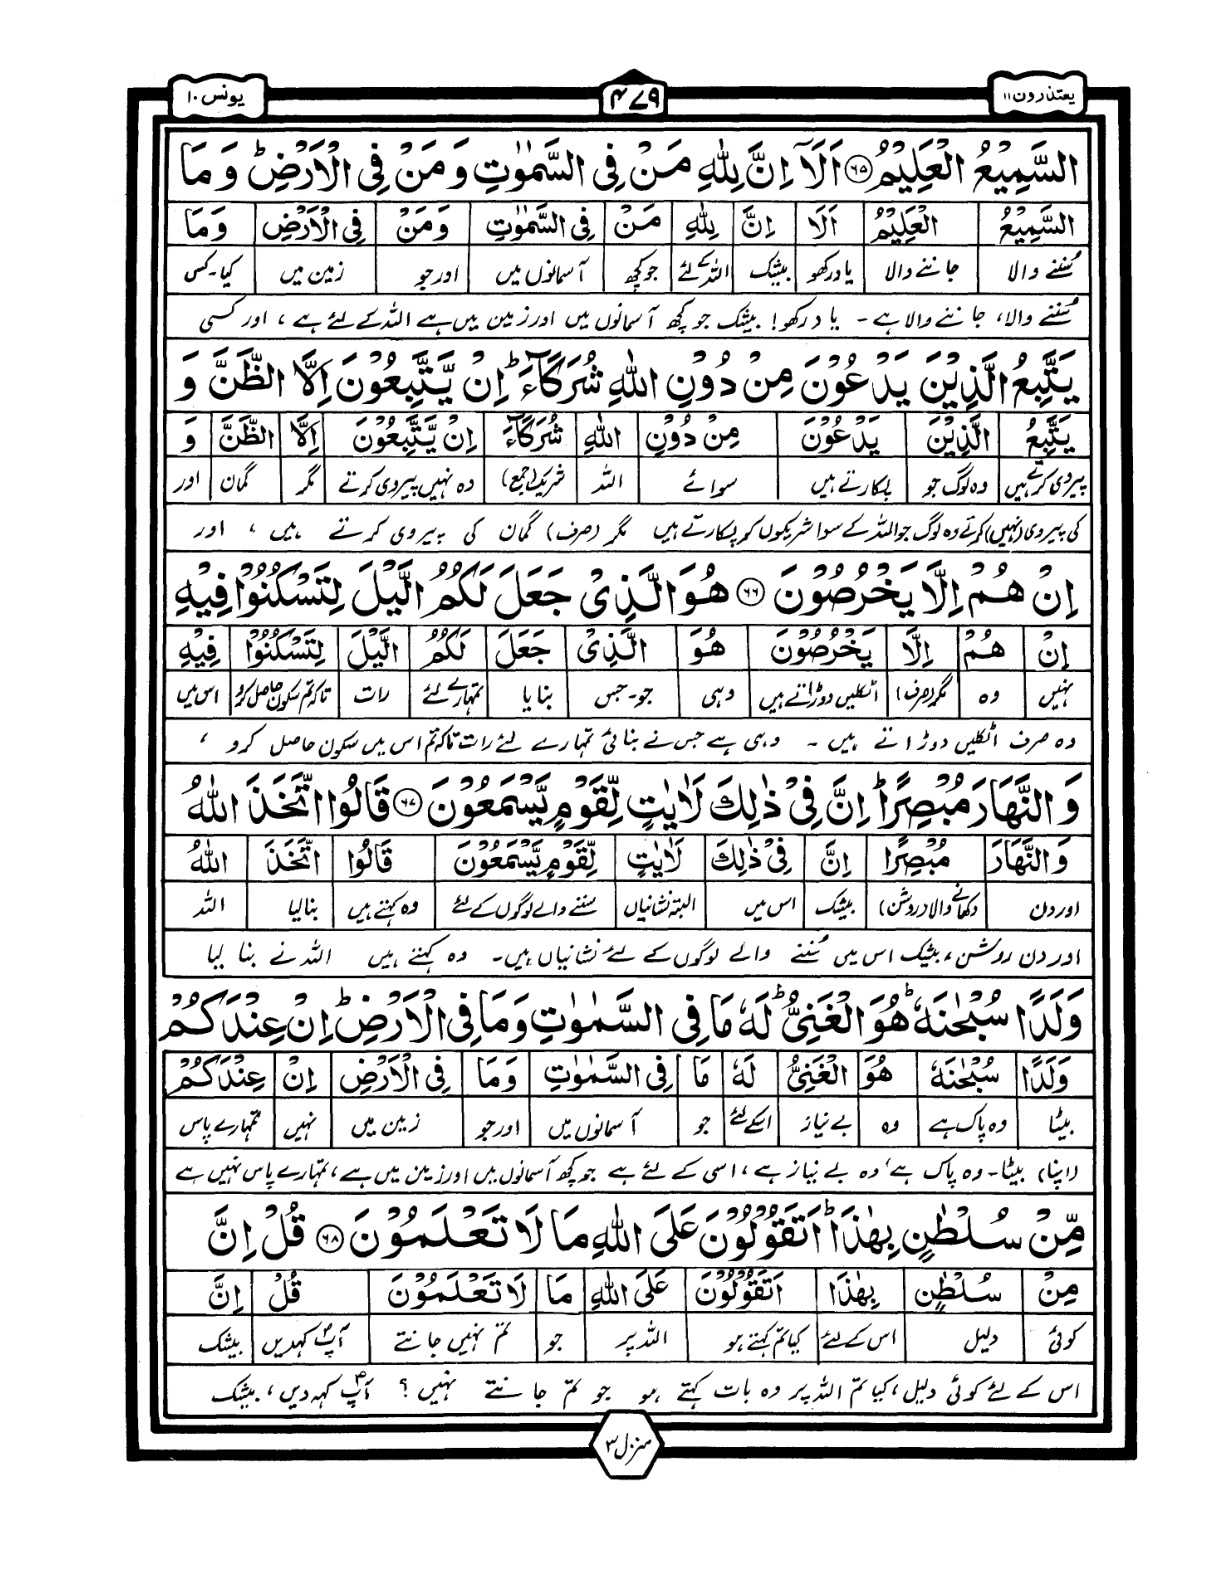 یعتذرون ۱۱
۴۷۹
یونس ۱۰
السَّمِيْعُ الْعَلِيْمُ ۝۶۵ اَلَاۤ اِنَّ لِلّٰهِ مَنْ فِى السَّمٰوٰتِ وَمَنْ فِى الْاَرْضِؕ وَمَا
السَّمِيْعُ | الْعَلِيْمُ | اَلَا | اِنَّ | لِلّٰهِ | مَنْ | فِى السَّمٰوٰتِ | وَمَنْ | فِى الْاَرْضِ | وَمَا
سُننے والا | جاننے والا | یاد رکھو | بیشک | اللہ کے لئے | جو کچھ | آسمانوں میں | اور جو | زمین میں | کیا۔کس
سُننے والا، جاننے والا ہے۔ یاد رکھو! بیشک جو کچھ آسمانوں میں اور زمین میں ہے اللہ کے لئے ہے، اور کسی
يَتَّبِعُ الَّذِيْنَ يَدْعُوْنَ مِنْ دُوْنِ اللّٰهِ شُرَكَآءَؕ اِنْ يَّتَّبِعُوْنَ اِلَّا الظَّنَّ وَ
يَتَّبِعُ | الَّذِيْنَ | يَدْعُوْنَ | مِنْ دُوْنِ | اللّٰهِ | شُرَكَآءَ | اِنْ يَّتَّبِعُوْنَ | اِلَّا | الظَّنَّ | وَ
پیروی کرتے ہیں | وہ لوگ جو | پکارتے ہیں | سوائے | اللہ | شریک (جمع) | وہ نہیں پیروی کرتے | مگر | گمان | اور
کی پیروی (نہیں) کرتے وہ لوگ جو اللہ کے سوا شریکوں کو پکارتے ہیں مگر (صرف) گمان کی پیروی کرتے ہیں، اور
اِنْ هُمْ اِلَّا يَخْرُصُوْنَ ۝۶۶ هُوَ الَّذِىْ جَعَلَ لَكُمُ الَّيْلَ لِتَسْكُنُوْا فِيْهِ
اِنْ | هُمْ | اِلَّا | يَخْرُصُوْنَ | هُوَ | الَّذِىْ | جَعَلَ | لَكُمُ | الَّيْلَ | لِتَسْكُنُوْا | فِيْهِ
نہیں | وہ | مگر (صرف) | اٹکلیں دوڑاتے ہیں | وہی | جو۔جس | بنایا | تمہارے لئے | رات | تاکہ تم سکون حاصل کرو | اس میں
وہ صرف اٹکلیں دوڑاتے ہیں۔ وہی ہے جس نے بنائی تمہارے لئے رات تاکہ تم اس میں سکون حاصل کرو،
وَالنَّهَارَ مُبْصِرًاؕ اِنَّ فِىْ ذٰلِكَ لَاٰيٰتٍ لِّقَوْمٍ يَّسْمَعُوْنَ ۝۶۷ قَالُوا اتَّخَذَ اللّٰهُ
وَالنَّهَارَ | مُبْصِرًا | اِنَّ | فِىْ ذٰلِكَ | لَاٰيٰتٍ | لِّقَوْمٍ يَّسْمَعُوْنَ | قَالُوا | اتَّخَذَ | اللّٰهُ
اور دن | دکھانے والا (روشن) | بیشک | اس میں | البتہ نشانیاں | سننے والے لوگوں کے لئے | وہ کہتے ہیں | بنا لیا | اللہ
اور دن روشن، بیشک اس میں سُننے والے لوگوں کے لئے نشانیاں ہیں۔ وہ کہتے ہیں اللہ نے بنا لیا
وَلَدًا سُبْحٰنَهٗؕ هُوَ الْغَنِىُّؕ لَهٗ مَا فِى السَّمٰوٰتِ وَمَا فِى الْاَرْضِؕ اِنْ عِنْدَكُمْ
وَلَدًا | سُبْحٰنَهٗ | هُوَ | الْغَنِىُّ | لَهٗ | مَا | فِى السَّمٰوٰتِ | وَمَا | فِى الْاَرْضِ | اِنْ | عِنْدَكُمْ
بیٹا | وہ پاک ہے | وہ | بے نیاز | اسکے لئے | جو | آسمانوں میں | اور جو | زمین میں | نہیں | تمہارے پاس
(اپنا) بیٹا۔ وہ پاک ہے، وہ بے نیاز ہے، اسی کے لئے ہے جو کچھ آسمانوں میں اور زمین میں ہے، تمہارے پاس نہیں ہے
مِّنْ سُلْطٰنٍۭ بِهٰذَاؕ اَتَقُوْلُوْنَ عَلَى اللّٰهِ مَا لَا تَعْلَمُوْنَ ۝۶۸ قُلْ اِنَّ
مِنْ | سُلْطٰنٍ | بِهٰذَا | اَتَقُوْلُوْنَ | عَلَى اللّٰهِ | مَا | لَا تَعْلَمُوْنَ | قُلْ | اِنَّ
کوئی | دلیل | اس کے لئے | کیا تم کہتے ہو | اللہ پر | جو | تم نہیں جانتے | آپؐ کہدیں | بیشک
اس کے لئے کوئی دلیل، کیا تم اللہ پر وہ بات کہتے ہو جو تم جانتے نہیں؟ آپؐ کہہ دیں، بیشک
منزل ۳